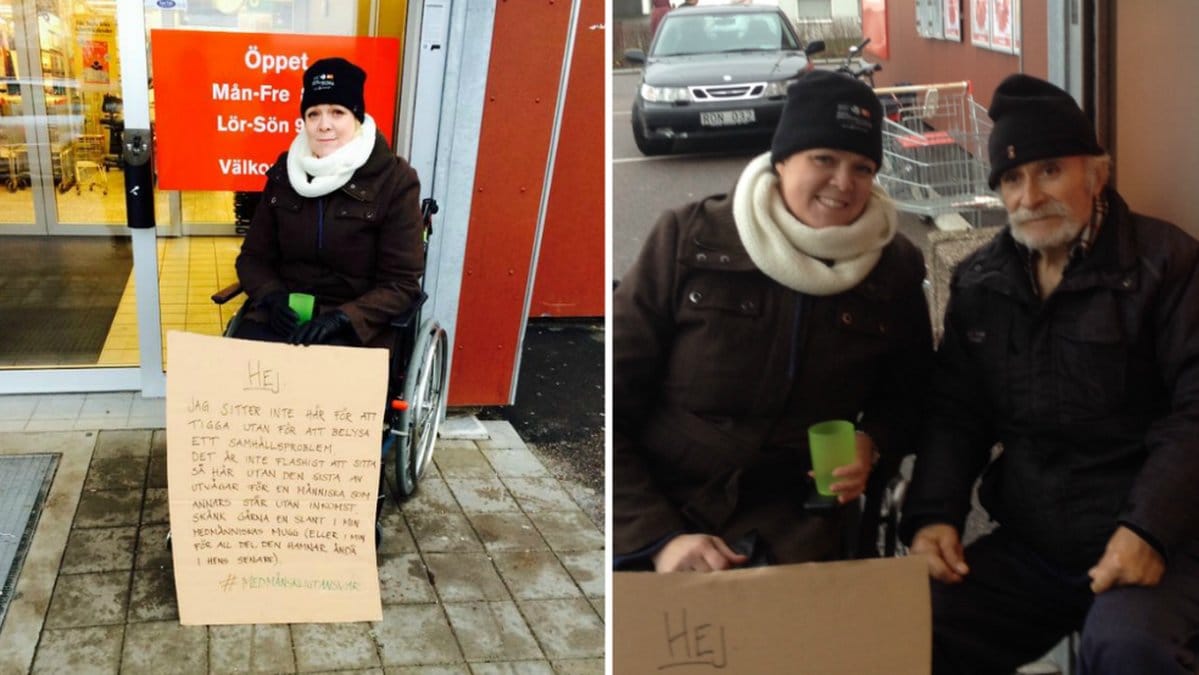 Öppet
Mån-Fre
Lör-Sön 9
Välko
HEJ
JAG SITTER INTE HÄR FÖR ATT
TIGGA UTAN FÖR ATT BELYSA
ETT SAMHÄLLSPROBLEM
DET ÄR INTE FLASHIGT ATT SITTA
SÅ HÄR UTAN DEN SISTA AV
UTVÄGAR FÖR EN MÄNNISKA SOM
ANNARS STÅR UTAN INKOMST.
SKÄNK GÄRNA EN SLANT I MIN
MEDMÄNNISKAS MUGG (ELLER I MIN
FÖR ALL DEL, DEN HAMNAR ÄNDÅ
I HENS SENARE).
#MEDMÄNSKLIGTANSVAR
RON 032
HEJ